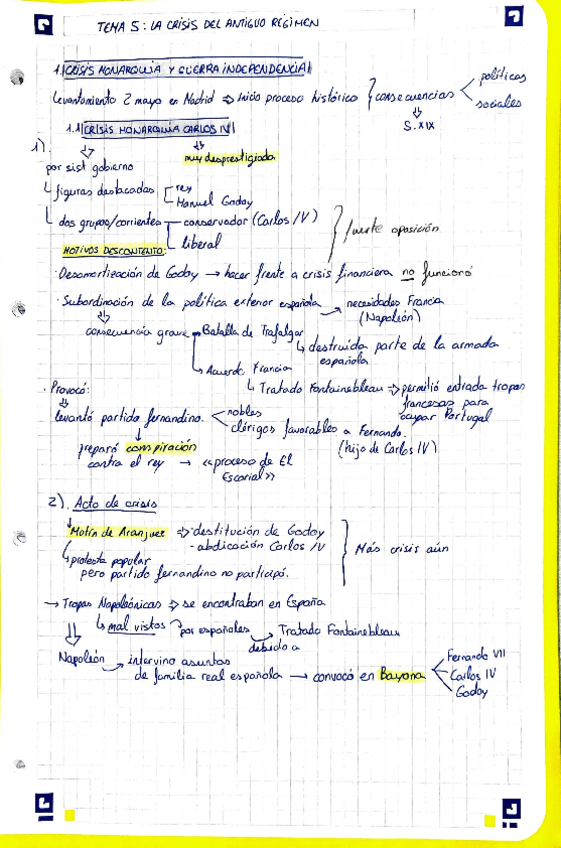 TEMA 5: LA CRISIS DEL ANTIGUO RÉGIMEN
1. CRISIS MONARQUIA Y GUERRA INDEPENDENCIA
Levantamiento 2 mayo en Madrid ⇒ Inicio proceso histórico } consecuencias < políticas
sociales
⇓
S. XIX
1.1 CRISIS MONARQUIA CARLOS IV
1).
⇓ ⇓
por sist gobierno muy desprestigiada
↳ figuras destacadas [ rey
Manuel Godoy
↳ dos grupos/corrientes [ conservador (Carlos IV)
liberal } fuerte oposición
MOTIVOS DESCONTENTO:
· Desamortización de Godoy → hacer frente a crisis financiera no funcionó
· Subordinación de la política exterior española → necesidades Francia
(Napoleón)
⇓
consecuencia grave → Batalla de Trafalgar
↳ destruida parte de la armada
española
↳ Acuerdo Francia
↳ Tratado Fontainebleau ⇒ permitió entrada tropas
francesas para
ocupar Portugal
· Provocó:
⇓
levantó partido fernandino. < nobles
clérigos favorables a Fernando.
(hijo de Carlos IV)
↓
preparó conspiración
contra el rey → «proceso de El
Escorial»
2). Acto de crisis
↓
Motín de Aranjuez ⇒ · destitución de Godoy
- abdicación Carlos IV } Más crisis aún
↳ protesta popular
pero partido fernandino no participó.
→ Tropas Napoleónicas ⇒ se encontraban en España
↳ mal vistos por españoles → Tratado Fontainebleau
debido a
⇓
Napoleón → intervino asuntos
de familia real española → convocó en Bayona < Fernando VII
Carlos IV
Godoy